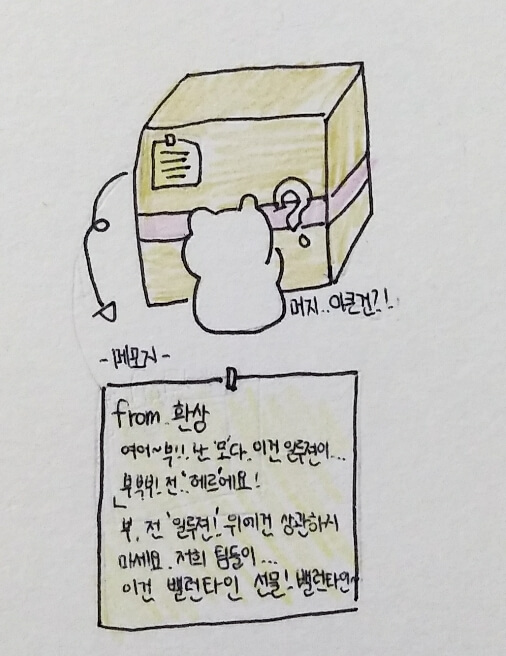 머지.. 이큰건?!
-메모지-
from 환상
여어~부!! 난 '모'다. 이건 일루젼이...
부부부! 전.. '헤르'에요!
부, 전 '일루젼!' 위에건 상관하지
마세요. 저희 팀들이...
이건 밸런타인 선물! 밸런타인~